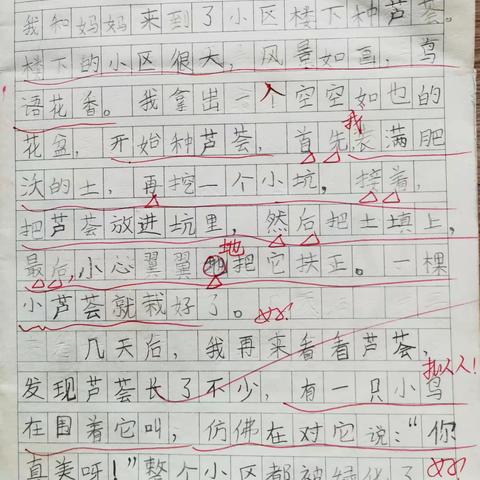 我和妈妈来到了小区楼下种芦荟。
楼下的小区很大，风景如画，鸟
语花香。我拿出一个空空如也的
花盆，开始种芦荟，首先我装满肥
沃的土，再挖一个小坑，接着，
把芦荟放进坑里，然后把土填上，
最后，小心翼翼地把它扶正。一棵
小芦荟就栽好了。好！
几天后，我再来看看芦荟，
拟人！
发现芦荟长了不少，有一只小鸟
在围着它叫，仿佛在对它说：“你
真美呀！”整个小区都被绿化了
好！